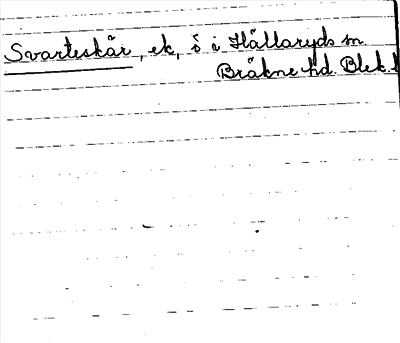 Svarteskär, ek, ö i Hällaryds sn
Bräkne hd. Blek. l